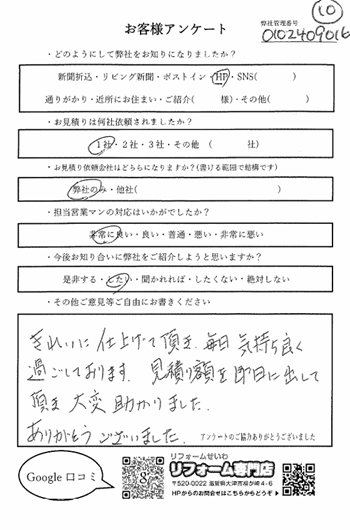 ⑩
お客様アンケート
弊社管理番号
0102409016
・どのようにして弊社をお知りになりましたか？
新聞折込・リビング新聞・ポストイン・HP・SNS(　　　)
通りがかり・近所にお住まい・ご紹介(　　　様)・その他(　　　)
・お見積りは何社依頼されましたか？
1社・2社・3社・その他 (　　　社)
・お見積り依頼会社はどちらになりますか？(書ける範囲で結構です)
弊社のみ・他社(　　　)
・担当営業マンの対応はいかがでしたか？
非常に良い・良い・普通・悪い・非常に悪い
・今後お知り合いに弊社をご紹介しようと思いますか？
是非する・したい・聞かれれば・したくない・絶対しない
・その他ご意見等ご自由にお書きください
きれいに仕上げて頂き、毎日気持ち良く
過ごしております。見積り額を即日に出して
頂き大変助かりました。
ありがとうございました。
アンケートのご協力ありがとうございました
Google口コミ
リフォームせいわ
リフォーム専門店
〒520-0022 滋賀県大津市柳が崎4-6
HPからのお問合せはこちらからどうぞ